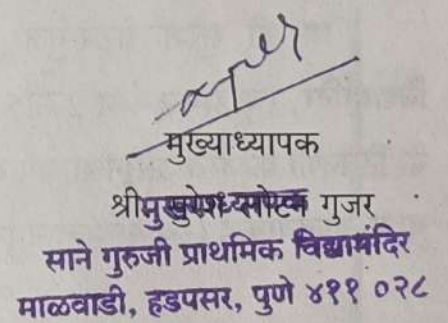 मुख्याध्यापक
श्री गुजर
साने गुरुजी प्राथमिक विद्यामंदिर
माळवाडी, हडपसर, पुणे ४११ ०२८